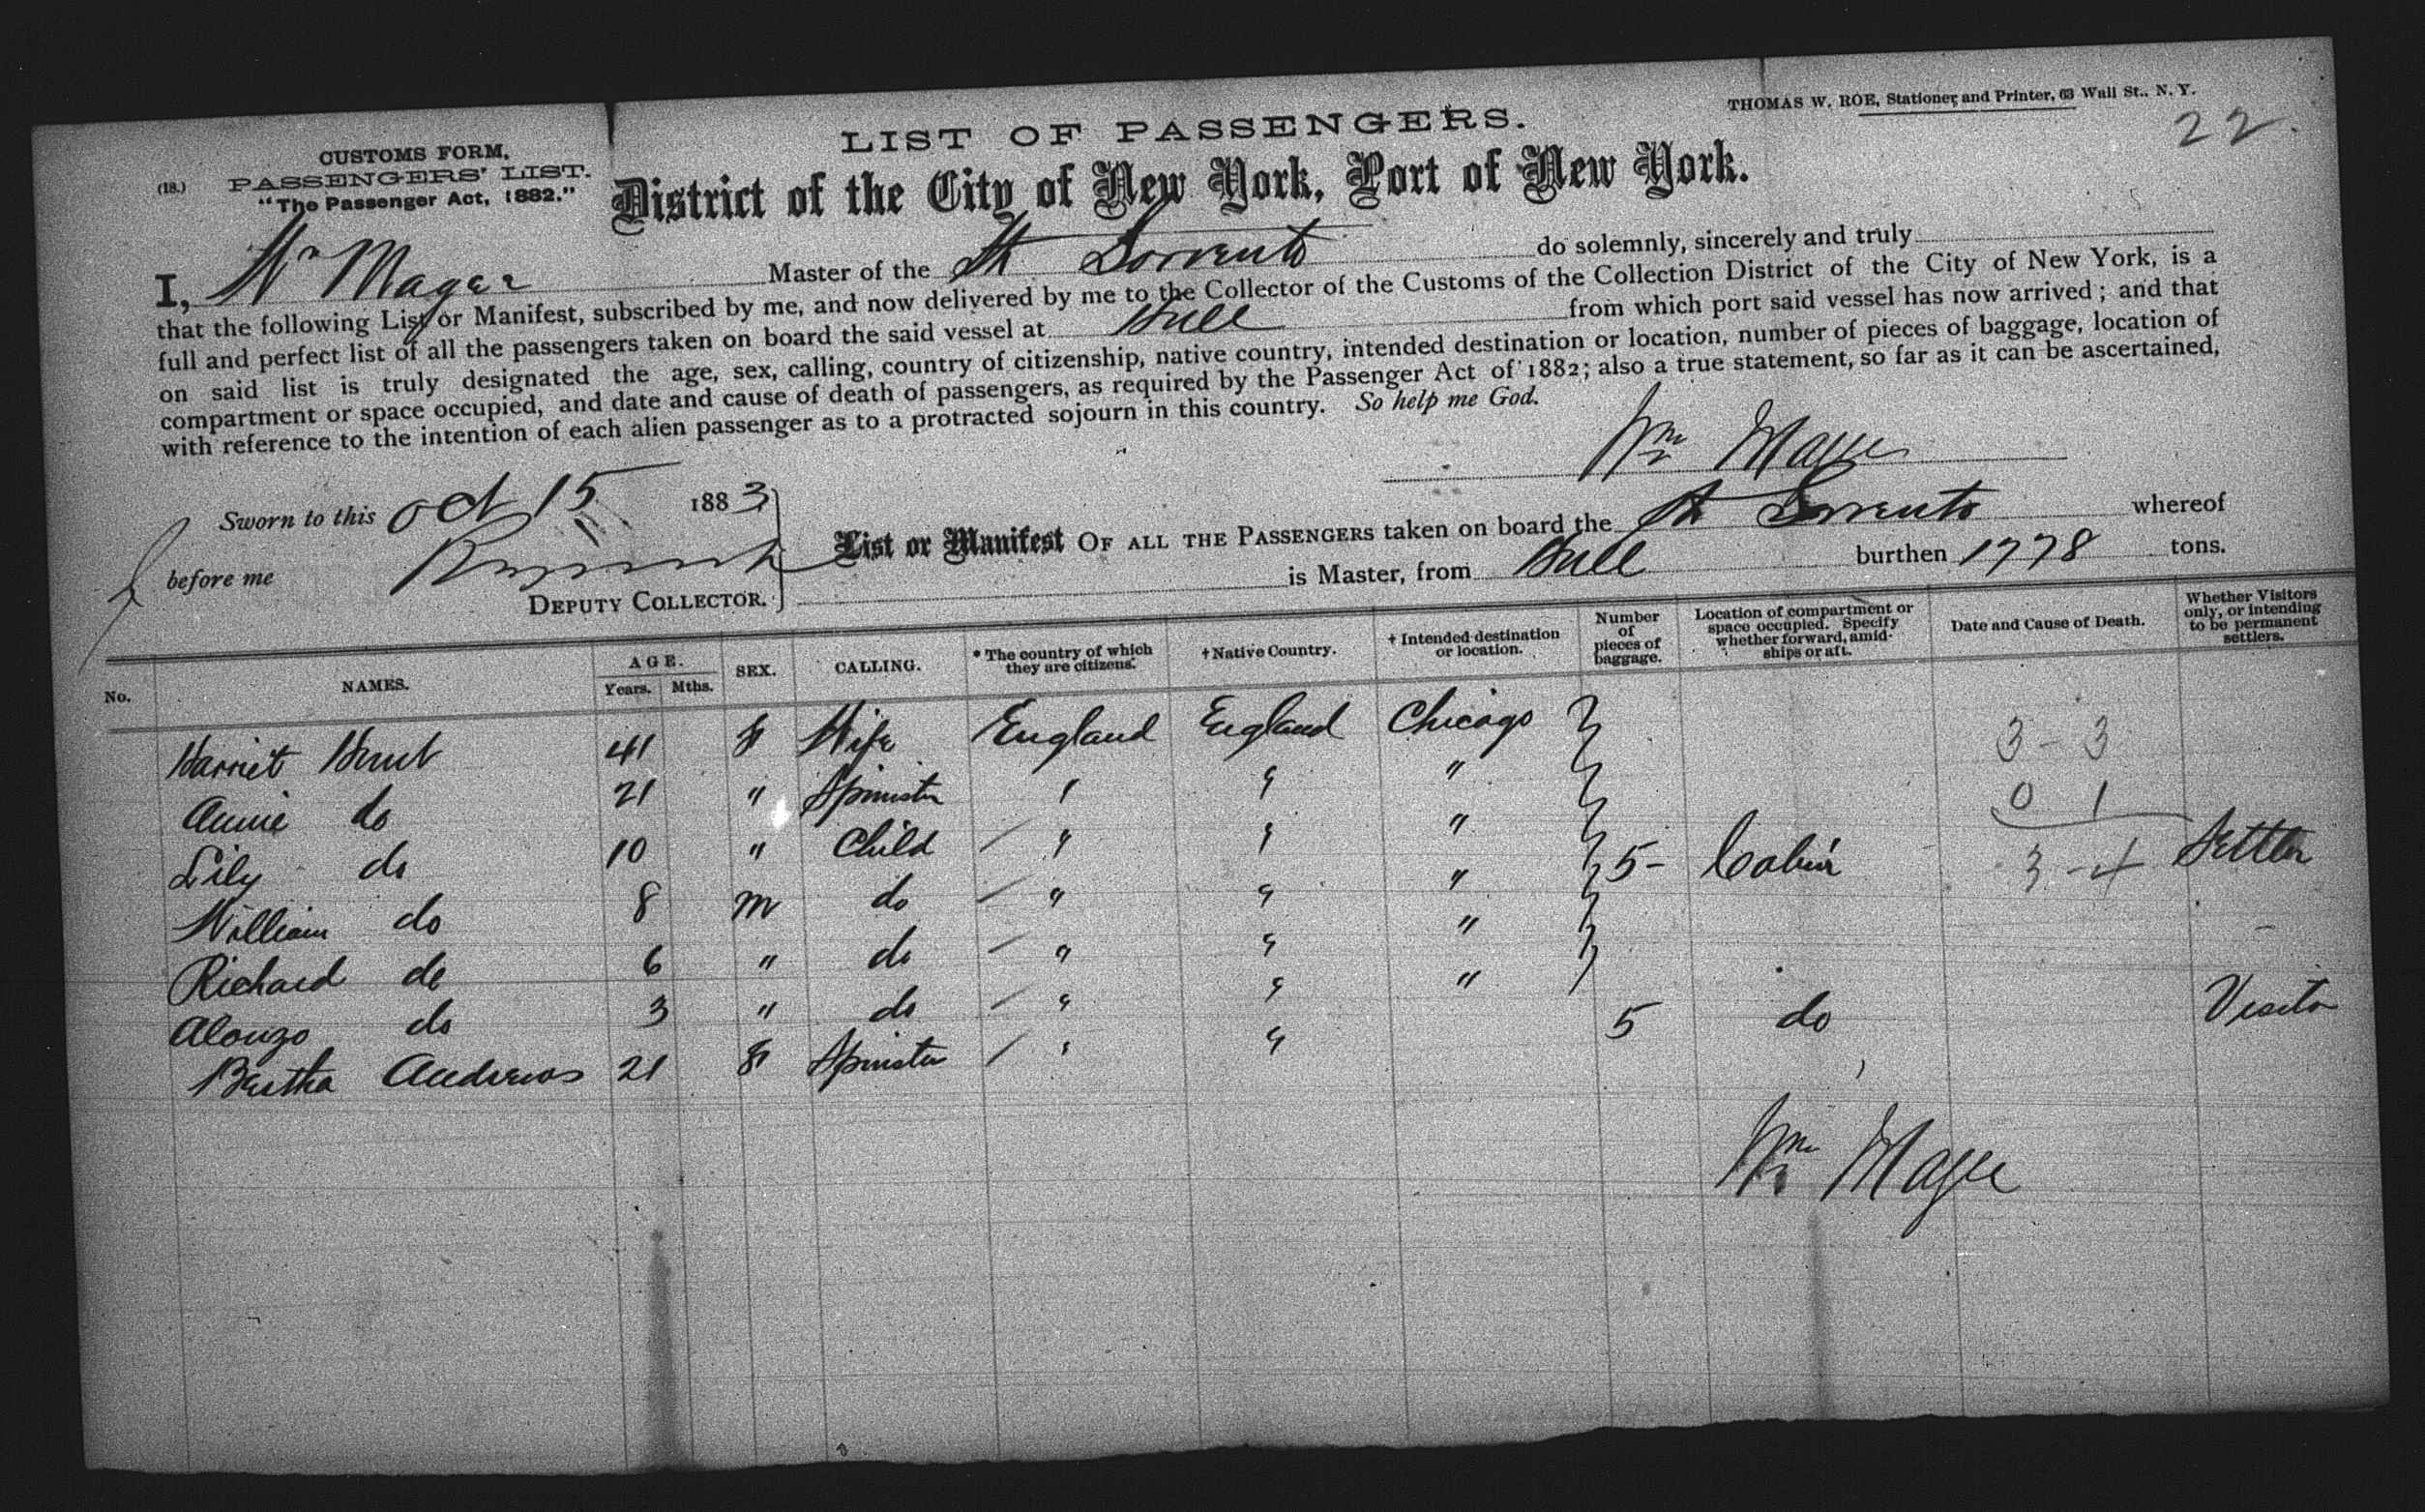 THOMAS W. ROE, Stationer and Printer, 63 Wall St., N. Y.
22.
LIST OF PASSENGERS.
(18.) CUSTOMS FORM,
PASSENGERS' LIST.
"The Passenger Act, 1882."
District of the City of New York, Port of New York.
I, Wm Mager Master of the St Sorrento do solemnly, sincerely and truly
that the following List or Manifest, subscribed by me, and now delivered by me to the Collector of the Customs of the Collection District of the City of New York, is a
full and perfect list of all the passengers taken on board the said vessel at Hull from which port said vessel has now arrived; and that
on said list is truly designated the age, sex, calling, country of citizenship, native country, intended destination or location, number of pieces of baggage, location of
compartment or space occupied, and date and cause of death of passengers, as required by the Passenger Act of 1882; also a true statement, so far as it can be ascertained,
with reference to the intention of each alien passenger as to a protracted sojourn in this country. So help me God.
Wm Mager
Sworn to this Oct 15 1883
before me
DEPUTY COLLECTOR.
List or Manifest OF ALL THE PASSENGERS taken on board the St Sorrento whereof
is Master, from Hull burthen 1778 tons.
No. NAMES. AGE. Years. Mths. SEX. CALLING. * The country of which they are citizens. † Native Country. † Intended destination or location. Number of pieces of baggage. Location of compartment or space occupied. Specify whether forward, amidships or aft. Date and Cause of Death. Whether Visitors only, or intending to be permanent settlers.
Harriet Hunt 41 f Wife England England Chicago 3 - 3
Annie do 21 " Spinster " " " 0 1
Lily do 10 " Child " " " 5- Cabin 3 - 4 Settler
William do 8 m do " " "
Richard do 6 " do " " "
Alonzo do 3 " do " " "
Bertha Andrews 21 f Spinster " " 5 do Visitor
Wm Mager